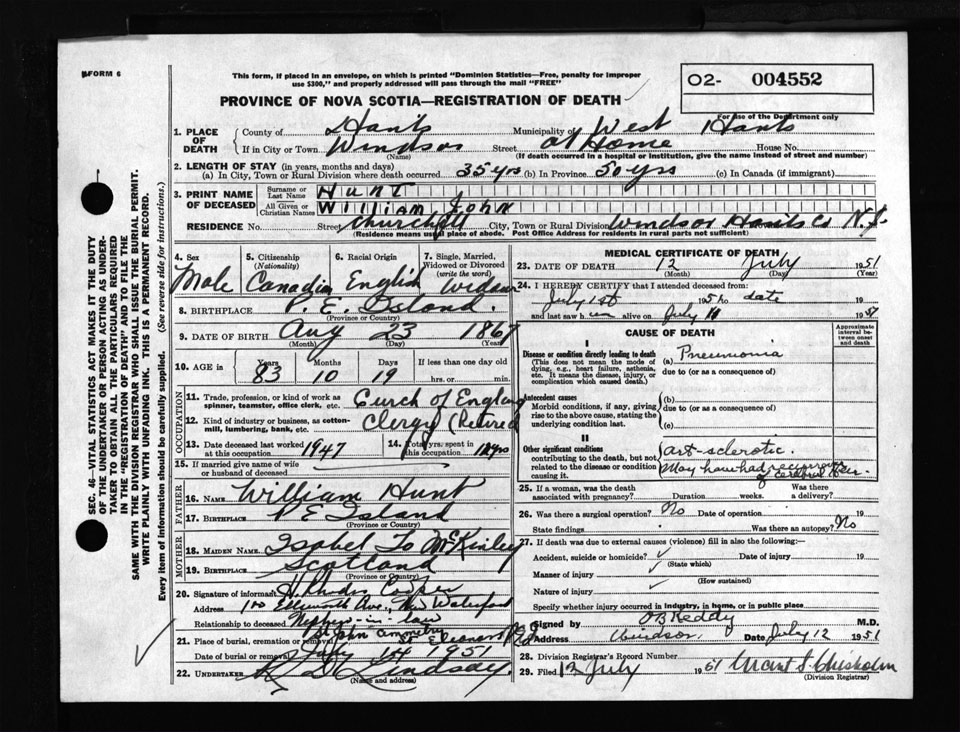 FORM 6
This form, if placed in an envelope, on which is printed "Dominion Statistics—Free, penalty for improper
use $300," and properly addressed will pass through the mail "FREE"
PROVINCE OF NOVA SCOTIA—REGISTRATION OF DEATH
O2- 004552
For use of the Department only
1. PLACE OF DEATH County of Hants Municipality of West Hants
If in City or Town Windsor Street at Home House No.
(Name) (If death occurred in a hospital or institution, give the name instead of street and number)
2. LENGTH OF STAY (in years, months and days)
(a) In City, Town or Rural Division where death occurred 35 yrs (b) In Province 50 yrs (c) In Canada (if immigrant)
3. PRINT NAME OF DECEASED Surname or Last Name Hunt
All Given or Christian Names William John
RESIDENCE No. Street Church St City, Town or Rural Division Windsor Hants Co N.S.
(Residence means usual place of abode. Post Office Address for residents in rural parts not sufficient)
4. Sex 5. Citizenship (Nationality) 6. Racial Origin 7. Single, Married, Widowed or Divorced (write the word)
Male Canadian English
8. BIRTHPLACE P. E. Island
(Province or Country)
9. DATE OF BIRTH Aug 23 1867
(Month) (Day) (Year)
10. AGE IN Years Months Days If less than one day old
83 10 19 hrs. or min.
OCCUPATION
11. Trade, profession, or kind of work as spinner, teamster, office clerk, etc. Curch of England
12. Kind of industry or business, as cotton-mill, lumbering, bank, etc. Clergy (Retired
13. Date deceased last worked at this occupation 1947 14. Total yrs. spent in this occupation
15. If married give name of wife or husband of deceased
FATHER
16. NAME William Hunt
17. BIRTHPLACE P E Island
(Province or Country)
MOTHER
18. MAIDEN NAME Isabel Jo McKinley
19. BIRTHPLACE Scotland
(Province or Country)
20. Signature of informant H. Rhodes Cooper
Address Ellsworth Ave., New Waterford
Relationship to deceased Nephew-in-law
21. Place of burial, cremation or removal St. Eleanors
Date of burial or removal July 14 1951
22. UNDERTAKER Lindsay
(Name and address)
MEDICAL CERTIFICATE OF DEATH
23. DATE OF DEATH 12 July 1951
(Month) (Day) (Year)
24. I HEREBY CERTIFY that I attended deceased from:
July 1st 1951 to date 19
and last saw him alive on July 11 1951
CAUSE OF DEATH
Approximate interval between onset and death
I
Disease or condition directly leading to death (a) Pneumonia
(This does not mean the mode of dying, e.g., heart failure, asthenia, etc. It means the disease, injury, or complication which caused death.) due to (or as a consequence of)
Antecedent causes (b)
Morbid conditions, if any, giving rise to the above cause, stating the underlying condition last. due to (or as a consequence of)
(c)
II
Other significant conditions contributing to the death, but not related to the disease or condition causing it. art-sclerotic.
May have had
of cerebral
25. If a woman, was the death associated with pregnancy? Duration weeks. Was there a delivery?
26. Was there a surgical operation? No Date of operation 19
State findings Was there an autopsy? No
27. If death was due to external causes (violence) fill in also the following:—
Accident, suicide or homicide? Date of injury 19
(State which)
Manner of injury
(How sustained)
Nature of injury
Specify whether injury occurred in industry, in home, or in public place
Signed by O B Keddy M.D.
Address Windsor Date July 12 1951
28. Division Registrar's Record Number
29. Filed 12 July 1951 Grant S. Chisholm
(Division Registrar)
SEC. 46—VITAL STATISTICS ACT MAKES IT THE DUTY
OF THE UNDERTAKER OR PERSON ACTING AS UNDER-
TAKER TO OBTAIN ALL THE PARTICULARS REQUIRED
IN THE "REGISTRATION OF DEATH" AND TO FILE THE
SAME WITH THE DIVISION REGISTRAR WHO SHALL ISSUE THE BURIAL PERMIT.
WRITE PLAINLY WITH UNFADING INK. THIS IS A PERMANENT RECORD.
Every item of information should be carefully supplied. (See reverse side for instructions.)